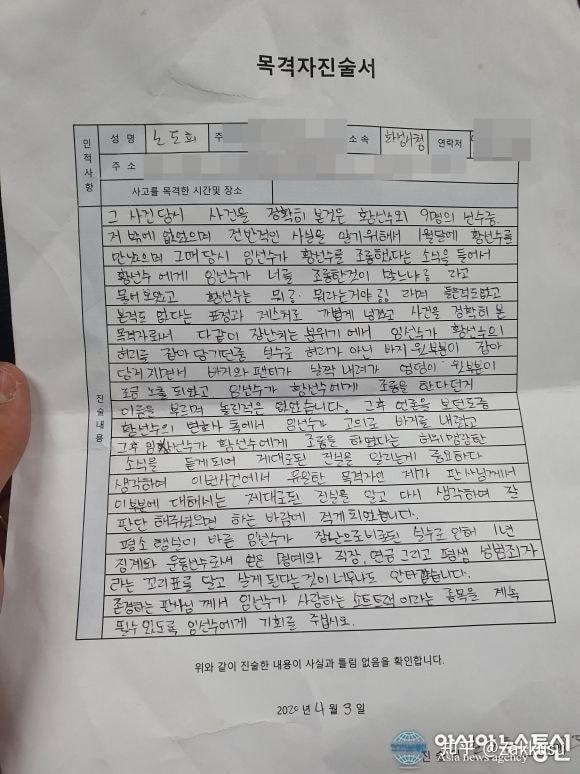 목격자진술서
인적사항
성 명 노도희 주 소 속 화성시청 연락처
주 소
사고를 목격한 시간및 장소
진술내용
그 사건 당시 사건을 정확히 본것은 황선수외 9명의 선수중
저 밖에 없었으며 전반적인 사실을 알기위해서 1월달에 황선수를
만났으며 그때당시 임선수가 황선수를 조롱했다는 소식을 들어서
황선수에게 임선수가 너를 조롱한것이 맞느냐? 라고
물어보았고 황선수는 뭐? 뭐라는거야? 라며 들은적도없고
본적도 없다는 표정과 제스처로 가볍게 넘겼고 사건을 정확히 본
목격자로서 다같이 장난치는 분위기에서 임선수가 황선수의
허리를 잡아 당기던중 실수로 허리가 아닌 바지 윗부분이 잡아
당겨지면서 바지와 팬티가 살짝 내려가 엉덩이 윗부분이
조금 노출 되었고 임선수가 황선수에게 조롱을 한다던지
이름을 부르며 놀린적은 없었습니다. 그후 언론을 보던도중
황선수의 변호사 측에서 임선수가 고의로 바지를 내렸고
그후 임선수가 황선수에게 조롱을 하였다는 허위 맹랑한
소식을 듣게되어 제대로된 진실을 알리는게 중요하다
생각하여 이번사건에서 유일한 목격자인 제가 판사님께서
이부분에 대해서는 제대로된 진실을 알고 다시 생각하여 잘
판단 해주셨으면 하는 바람에 적게 되었습니다.
평소 행실이 바른 임선수가 장난으로 비롯된 실수로 인해 1년
징계와 운동선수로서 얻은 명예와 직장, 연금 그리고 평생 성범죄자
라는 꼬리표를 달고 살게 된다는것이 너무나도 안타깝습니다.
존경하는 판사님 께서 임선수가 사랑하는 쇼트트랙 이라는 종목을 계속
할수 있도록 임선수에게 기회를 주십시오.
위와 같이 진술한 내용이 사실과 틀림 없음을 확인합니다.
2020 년 4 월 3 일
진술
아시아뉴스통신
Asia news agency
知乎 @zakkusu